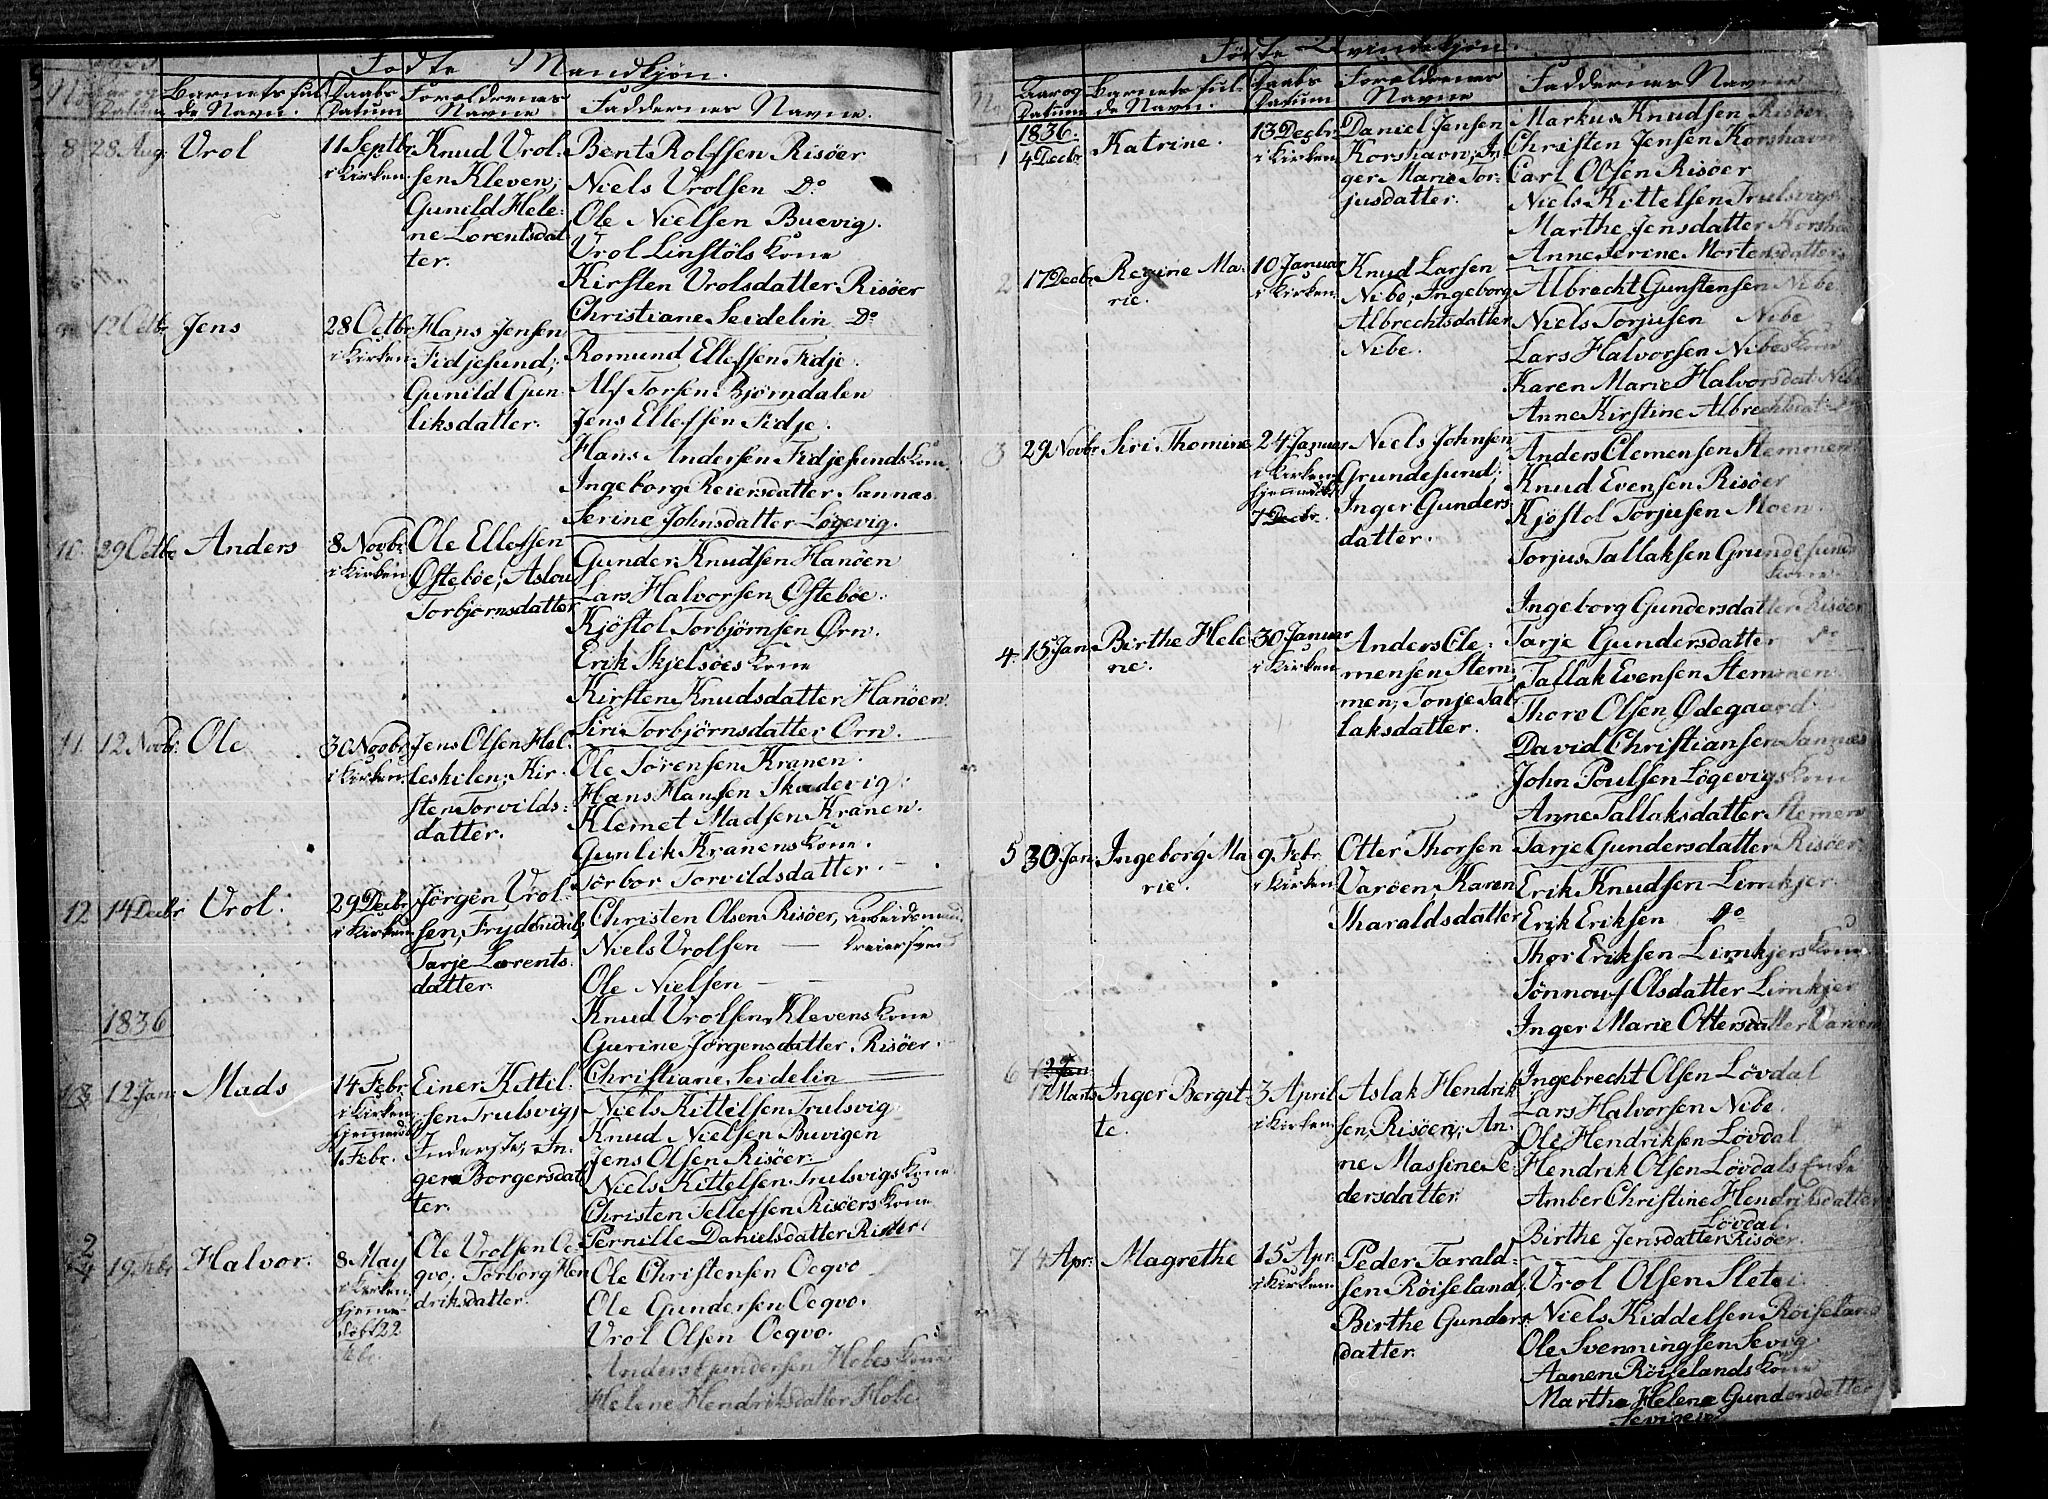 Födte Mandkjön.
No Aar og Datum Barnets fulde Navn. Daabs Datum Forældrenes Navne Faddernes Navne.
8 28 Aug: Vrol 11 Septbr i Kirken Knud Vrol:
sen Kleven;
Gunild Hele:
ne Lorentsdat
ter.
Bent Rolfssen Risöer
Niels Vrolsen Do
Ole Nielsen Buevig.
Vrol Linstöls Kone
Kirsten Vrolsdatter Risöer
Christiane Seidelin Do
12 Octbr Jens 28 Octbr i Kirken Hans Jensen
Fidjesund;
Gunild Gun
liksdatter.
Romund Ellefsen Fidje.
Alf Torsen Björndalen
Jens Ellefsen Fidje.
Hans Andersen Fidjesunds Kone
Ingeborg Reiersdatter Sannæs.
Serine Johnsdatter Lögevig.
10. 29 Octbr Anders 8 Novbr i Kirken Ole Ellefsen
Ostebøe; Aslou
Torbjörnsdatter
Gunder Knudsen Hanöen
Lars Halvorsen Ostebøe.
Kjöstol Torbjörnsen Örn.
Erik Skjelsöes Kone
Kirsten Knudsdatter Hanöen.
Siri Torbjörnsdatter Örn.
11. 12 Novbr: Ole 30 Novbr i Kirken Jens Olsen Hel:
leskilen; Kir:
sten Torvilds:
datter.
Ole Sörensen Kranen.
Hans Hansen Skadevig.
Klemet Madsen Kranen.
Gunlik Kranens Kone.
Törbor Torvildsdatter. —
12 14 Decbr Vrol. 29 Decbr i Kirken Jörgen Vrol:
sen, Frydendal;
Tarje Lorents
datter.
Christen Olsen Risöer, Arbeidsmand
Niels Vrolsen —
Ole Nielsen — —
Knud Vrolsen Klevens Kone
Gurine Jörgensdatter, Risöer.
Christiane Seidelin —
1836
13 12 Jan: Mads 14 Febr i Kirken hjemmedöbt 1. Febr. Einer Kittil:
sen Trulsvig,
Inderste; In:
ger Borgersdat
ter.
Niels Kittilsen Trulsvig
Knud Nielsen Buvigen
Jens Olsen Risöer.
Niels Kittelsen Trulsvigs Kone
Christen Tellefsen Risöers Kone
Pernille Danielsdatter Risöer
2 19 Febr Halvor. 8 May i Kirken, hjemmedöbt 22 Febr. Ole Vrolsen Oe
qvo; Törborg Hen
driksdatter.
Ole Christensen Oeqvo
Ole Gundersen Oeqvo.
Vrol Olsen Oeqvo.
Anders Gundersen Hobes Kone
Helene Hendriksdatter Hobe
Födte Qvindekjön.
No Aar og Datum Barnets fulde Navn. Daabs Datum Forældrenes Navne Faddernes Navne
1836.
1 4 Decbr Katrine. 13 Decbr: i Kirken Daniel Jensen
Korshavn; In
ger Marie Tor:
jusdatter.
Markus Knudsen Risöer
Christen Jensen Korshavn
Carl Olsen Risöer
Niels Kittelsen Trulsvig
Marthe Jensdatter Korshavn
Anne Serine Mortensdatter
2 17 Decbr Regine Ma:
rie.
10 Januar i Kirken Knud Larsen
Nibe; Ingeborg
Albrechtsdatter
Nibe.
Albrecht Gunstensen Nibe
Niels Torjusen Nibe
Lars Halvorsen Nibes Kone
Karen Marie Halvorsdat: Nibe
Anne Kirstine Albrechtsdat: Do
3 29 Novbr Siri Thomine 24 Januar i Kirken hjemmedöbt 7 Decbr. Niels Johnsen
Grundesund;
Inger Gunders
datter.
Anders Clemensen Stemmen
Knud Evensen Risöer
Kjöstol Torjusen Moen.
Torjus Tallaksen Grundesunds
Kone.
Ingeborg Gundersdatter Risöer
Tarje Gundersdatter Do
4. 15 Jan Birthe Hele
ne.
30 Januar i Kirken Anders Cle:
mensen Stem:
men; Tonje Tal
laksdatter.
Tallak Evensen Stemmen.
Thore Olsen Ødegaard
David Christiansen Sannæs
John Poulsen Lögevigs Kone
Anne Tallaksdatter Stemmen
Tarje Gundersdatter Risöer
5 30 Jan: Ingeborg Ma
rie.
9 Febr i Kirken Otter Thorsen
Varöen, Karen
Tharaldsdatter
Erik Knudsen Limkjer.
Erik Eriksen Do
Thor Eriksen Limkjers Kone
Sönnowf Olsdatter Limkjer
Inger Marie Ottersdatter Varöen
6 17 Marts Inger Bergit:
te.
3 April i Kirken Aslak Hendrik
sen, Risöen; An:
ne Massine Pe
dersdatter.
Ingebrecht Olsen Lövdal
Lars Halvorsen Nibe.
Ole Hendriksen Lövdal
Hendrik Olsen Lövdals Enke
Amber Christine Hendriksdatter
Lövdal.
Birthe Jensdatter Risöer.
7 4 Apr: Magrethe 15 Apr: i Kirken Peder Tarald:
sen Röiseland;
Birthe Gunders
datter.
Vrol Olsen Sletei
Niels Kiddelsen Röiseland
Ole Svenningsen Sevig
Aanen Röiselands Kone
Marthe Helene Gundersdatter
Sevigen